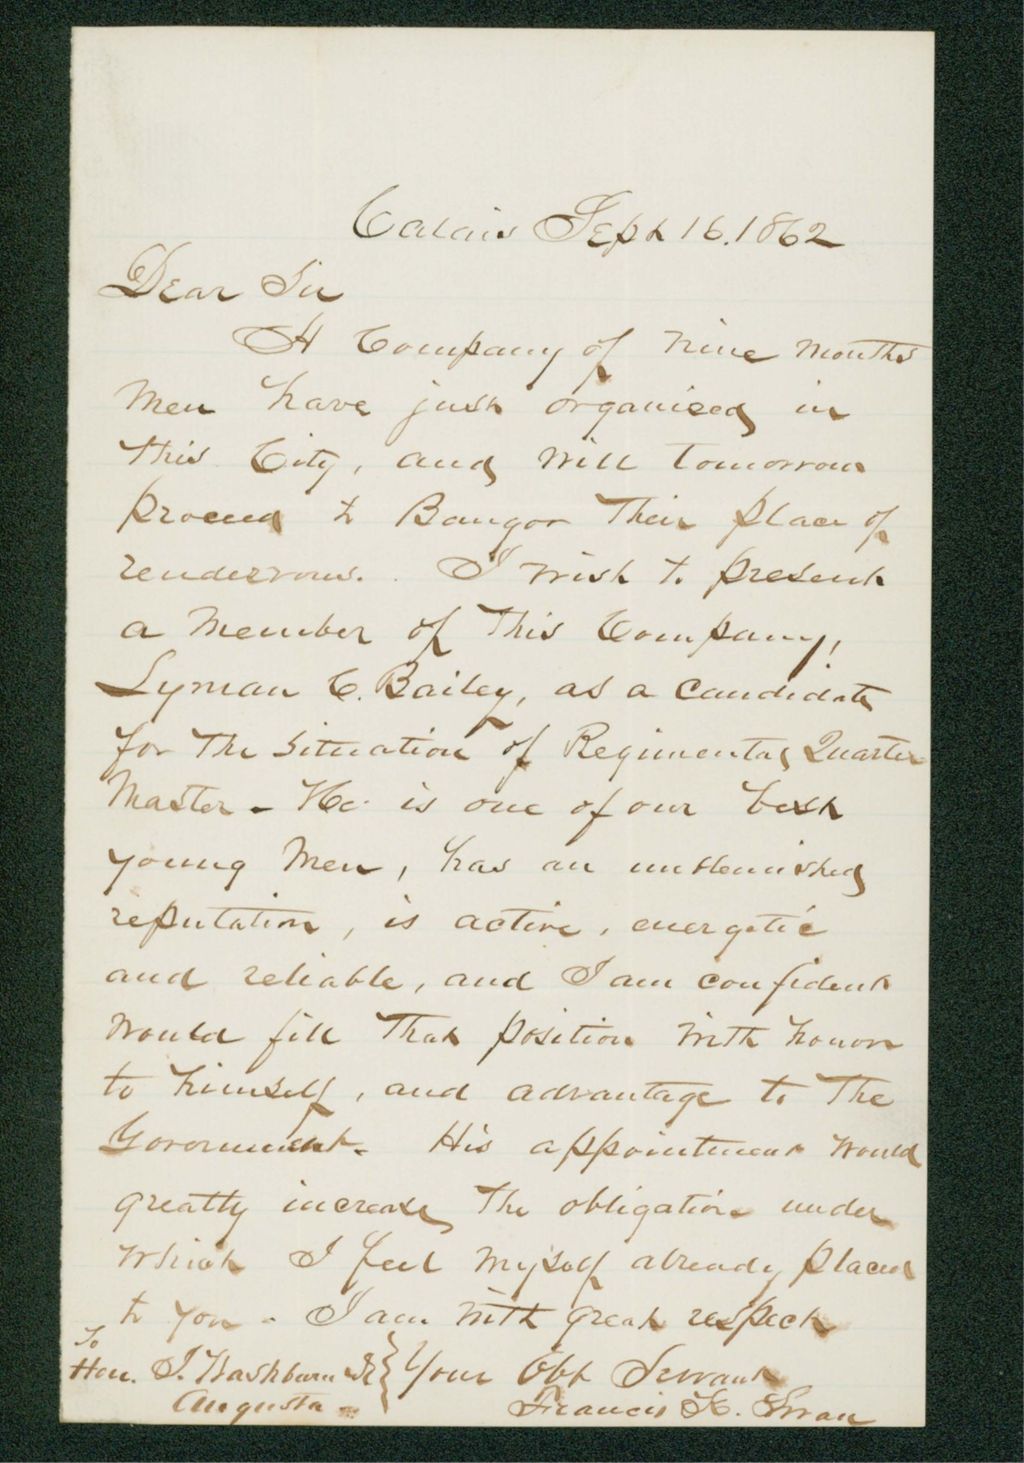 Calais Sept 16. 1862
Dear Sir
A Company of nine months
men have just organised in
this City, and will tomorrow
proceed to Bangor their place of
rendezvous. I wish to present
a member of this Company,
Lyman C. Bailey, as a candidate
for the situation of Regimental Quarter
Master - He is one of our best
young men, has an unblemished
reputation, is active, energetic
and reliable, and I am confident
would fill that position with honor
to himself, and advantage to the
Government. His appointment would
greatly increase the obligations under
which I feel myself already placed
to you - I am with great respect
To
Hon. I. Washburn Jr } Your Obt Servant
Augusta - Francis K. Swan